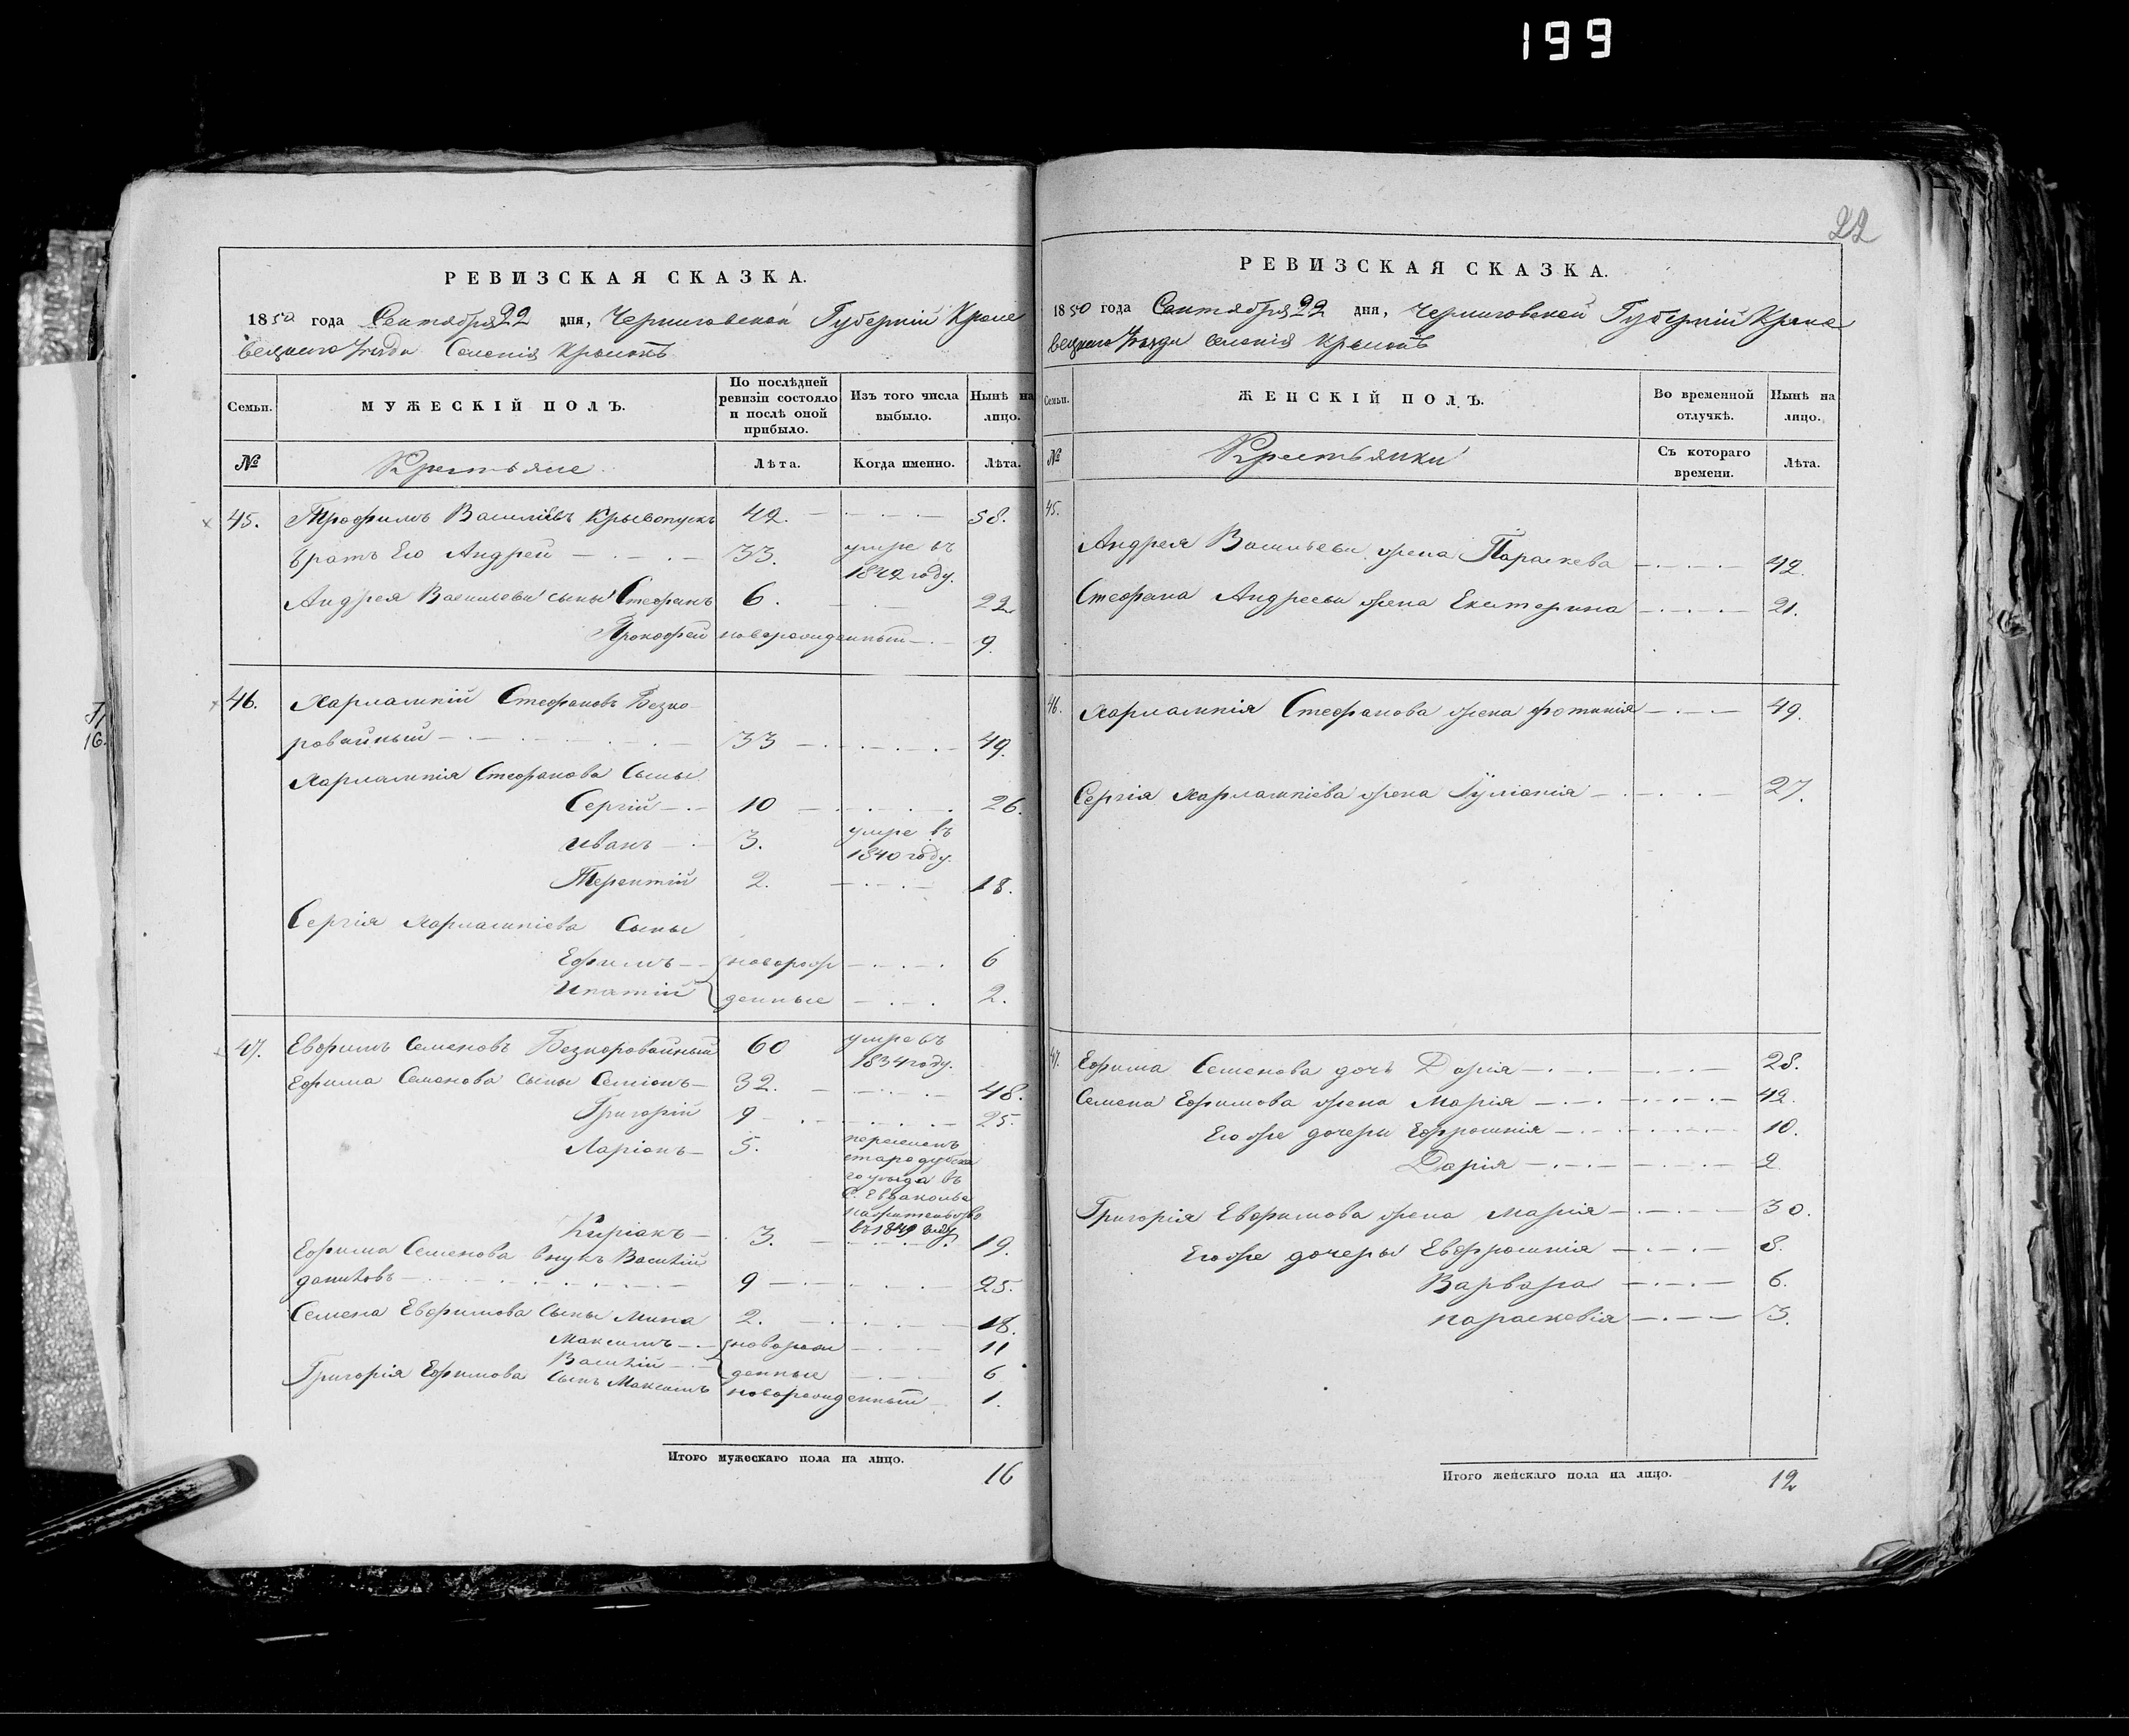 199
22
РЕВИЗСКАЯ СКАЗКА.
1850 года Сентября 22 дня, Черниговской Губерніи Кроле
вецкаго Уезда Селенія
Семьи.
МУЖЕСКІЙ ПОЛЪ.
По послѣдней ревизіи состояло и послѣ оной прибыло.
Изъ того числа выбыло.
Нынѣ на лицо.
№
Крестьяне
Лѣта.
Когда именно.
Лѣта.
45. Трофимъ Василіевъ Крывопускъ 42. 58.
братъ Его Андрей 33. умре въ
1842 году.
Андрея Васильева сыны Стефанъ 6. 22
Прокофей новорожденный 9.
46. Харлампій Стефановъ Безко
ровайный 33 49.
Харлампія Стефанова Сыны
Сергій 10 26.
Иванъ 3. умре въ
1840 году.
Терентій 2. 18.
Сергія Харлампіева Сыны
Ефимъ новорож 6
Ипатій денные 2.
47. Евфимъ Семеновъ Безкоровайный 60 умре въ
1834 году.
Ефима Семенова сыны Семіонъ 32. 48.
Григорій 9 25.
Ларіонъ 5.
стародубска
го уезда въ
С.
въ 1849 году
Киріакъ 3. 19.
Ефима Семенова внукъ Василій
даниловъ 9 25.
Семена Евфимова Сыны Мина 2. 18.
Максимъ новорож 11
Василій денные 6
Григорія Ефимова Сынъ Максимъ новорожденный 1.
Итого мужескаго пола на лицо.
16
РЕВИЗСКАЯ СКАЗКА.
1850 года Сентября 22 дня, Черниговской Губерніи Кроле
вецкаго Уезда Селенія
Семьи.
ЖЕНСКІЙ ПОЛЪ.
Во временной отлучкѣ.
Нынѣ на лицо.
№
Крестьянки
Съ котораго времени.
Лѣта.
45.
Андрея Васильева жена Параскева 42.
Стефана Андреева жена Екатерина 21.
46. Харлампія Стефанова жена Фотинія 49.
Сергія Харлампіева жена Іуліанія 27.
47. Ефима Семенова дочь Дарія 28.
Семена Ефимова жена Марія 42.
Его же дочеры Ефросинія 10.
Дарія 2
Григорія Евфимова жена Марія 30.
Его же дочеры Евфросинія 8.
Варвара 6.
параскевія 3.
Итого женскаго пола на лицо.
12